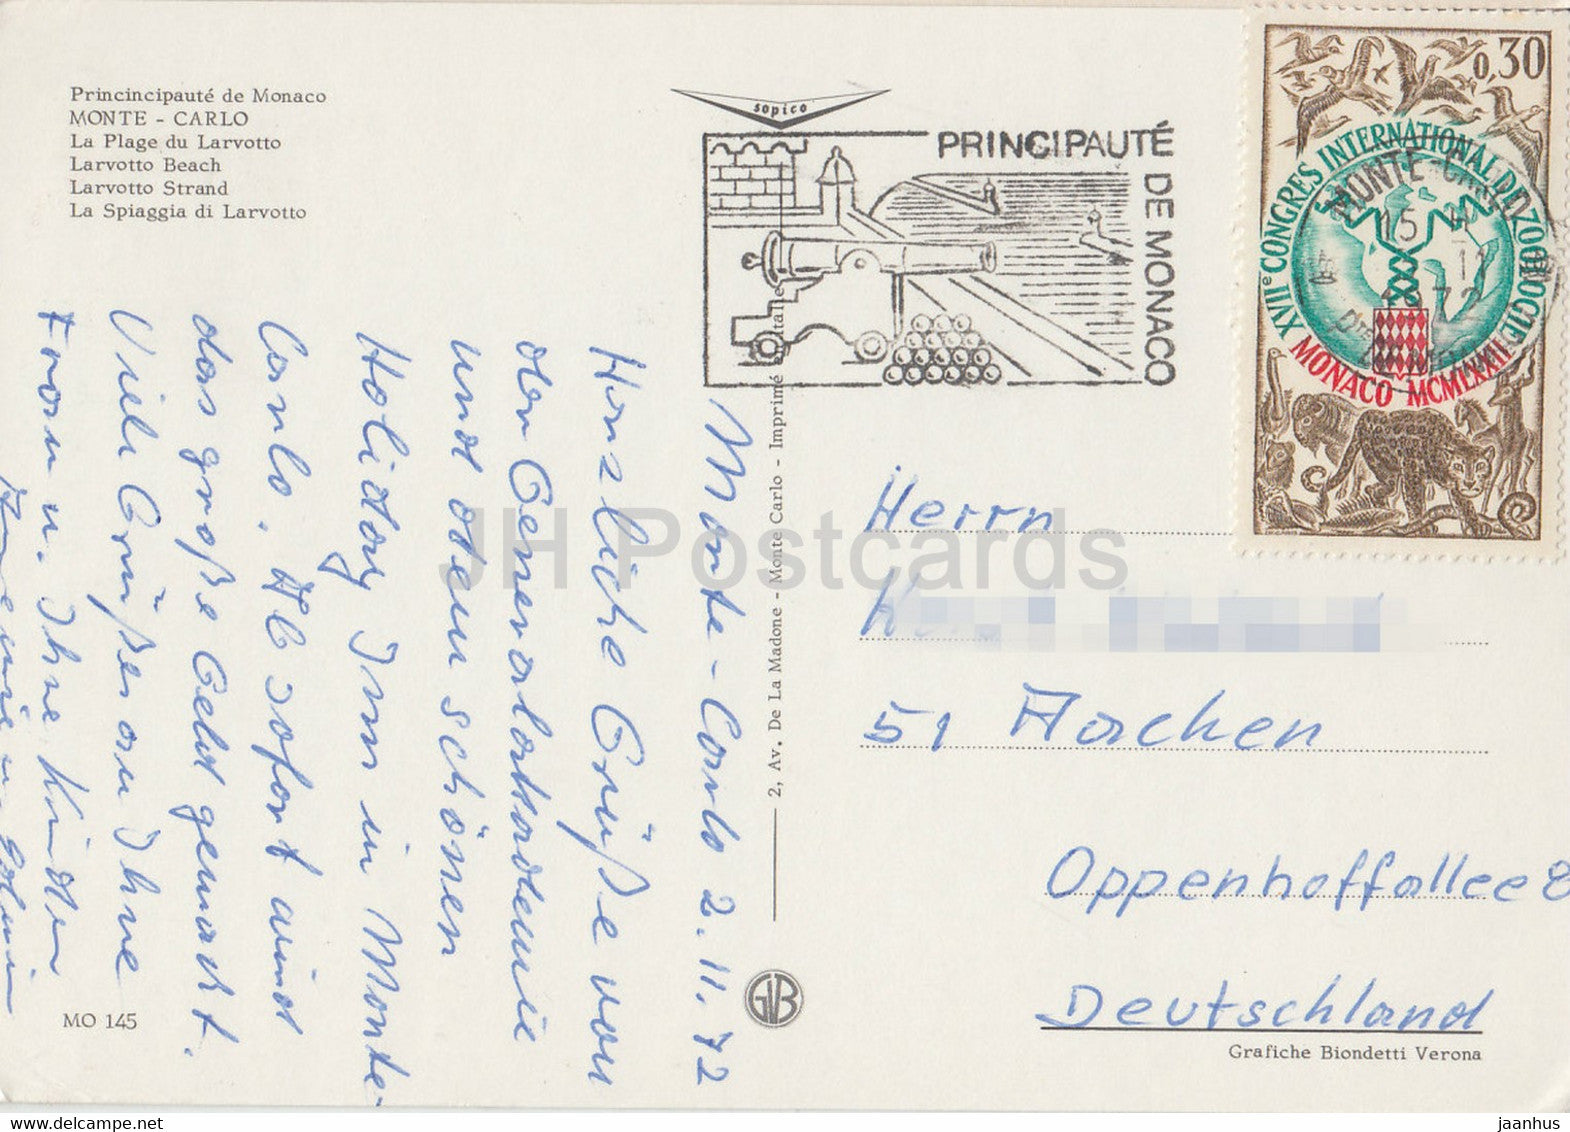 Princincipauté de Monaco
MONTE - CARLO
La Plage du Larvotto
Larvotto Beach
Larvotto Strand
La Spiaggia di Larvotto
sopico
PRINCIPAUTÉ
DE MONACO
0,30
XVIIe CONGRES INTERNATIONAL DE ZOOLOGIE
MONACO MCMLXXII
MONTE-CARLO
15 H
1972
Monte-Carlo 2.11.72
Herzliche Grüße von
der Generalakademie
und dem schönen
Holiday Inn in Monte-
Carlo. Ab sofort wird
das große Geld gemacht.
Viele Grüße an Ihre
Frau u. Ihre Kinder
2, Av. De La Madone - Monte Carlo - Imprimé en Italie
Herrn
51 Aachen
Oppenhoffallee 8
Deutschland
GVB
MO 145
Grafiche Biondetti Verona
JH Postcards
jaanhus